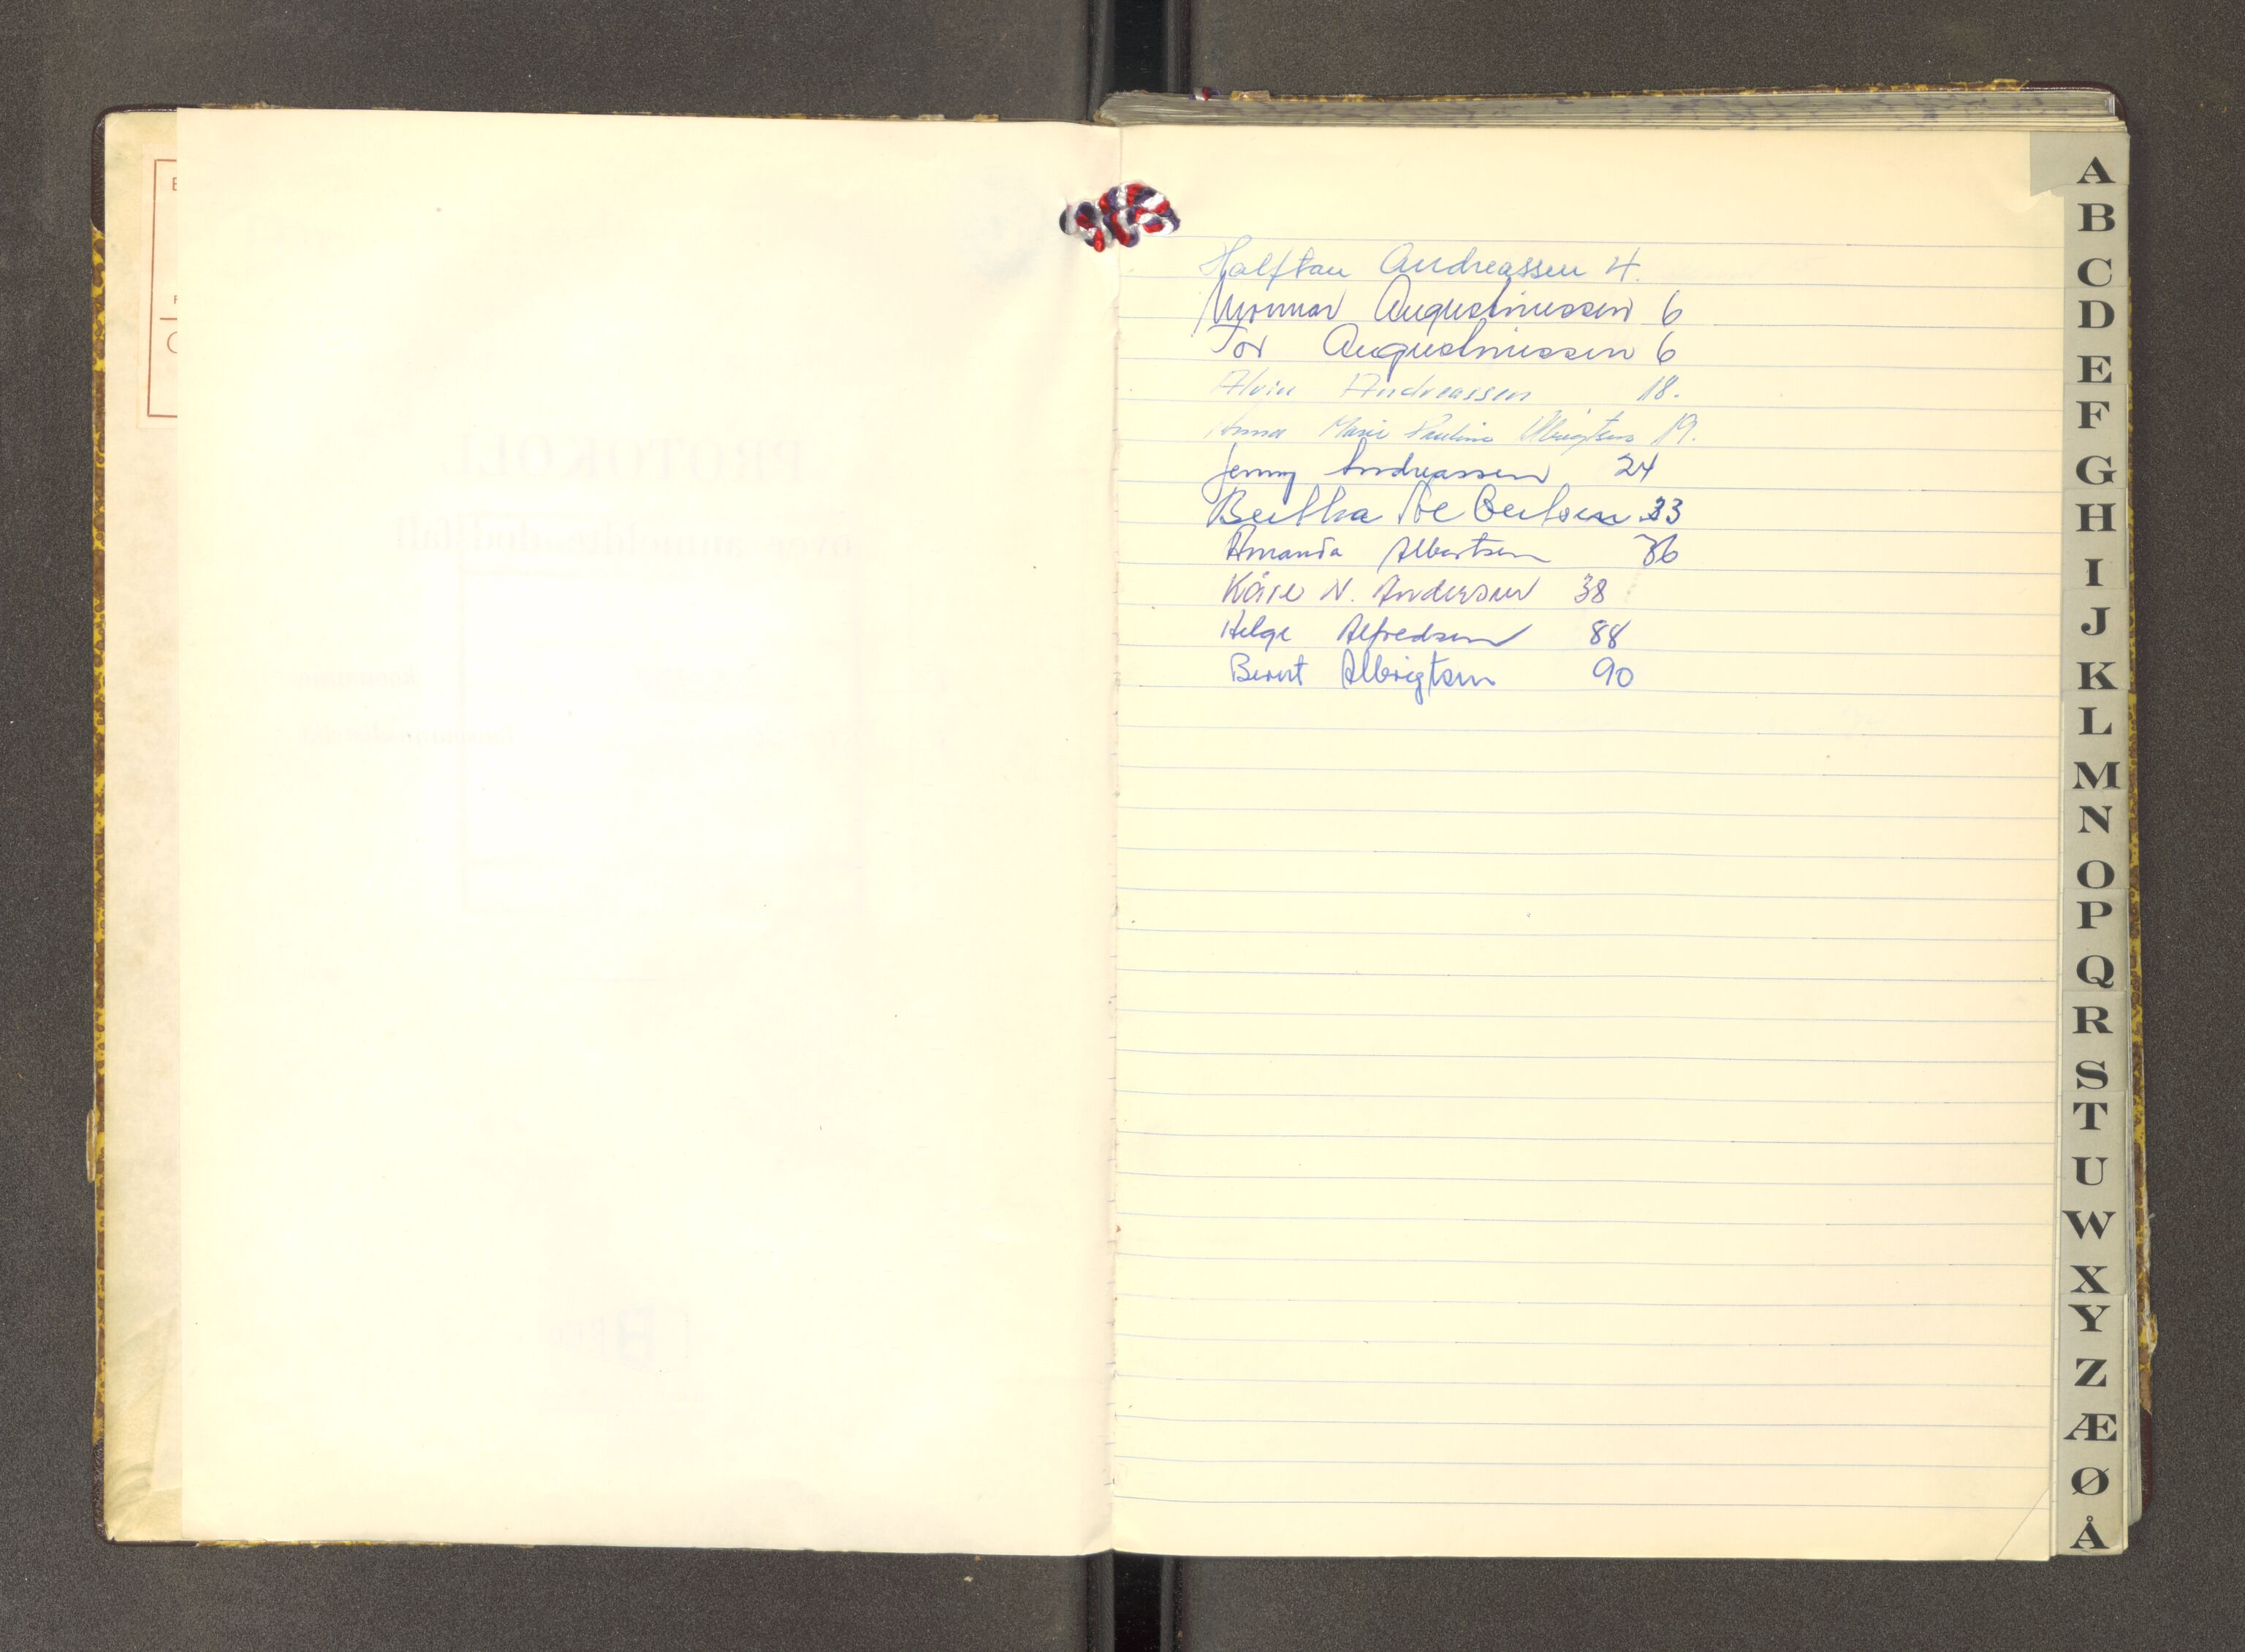 Halftan Andreassen 4.
Augustinussen 6
Tor Augustinussen 6
Alvin Andreassen 18.
Anna Marie Pauline Albrigtsen 19.
Jenny Andreassen 24
Bertha 33
Amanda Albertsen 36
Kåre N. Andersen 38
Helge Alfredsen 88
Berit Albrigtsen 90
A
B
C
D
E
F
G
H
I
J
K
L
M
N
O
P
Q
R
S
T
U
W
X
Y
Z
Æ
Ø
Å